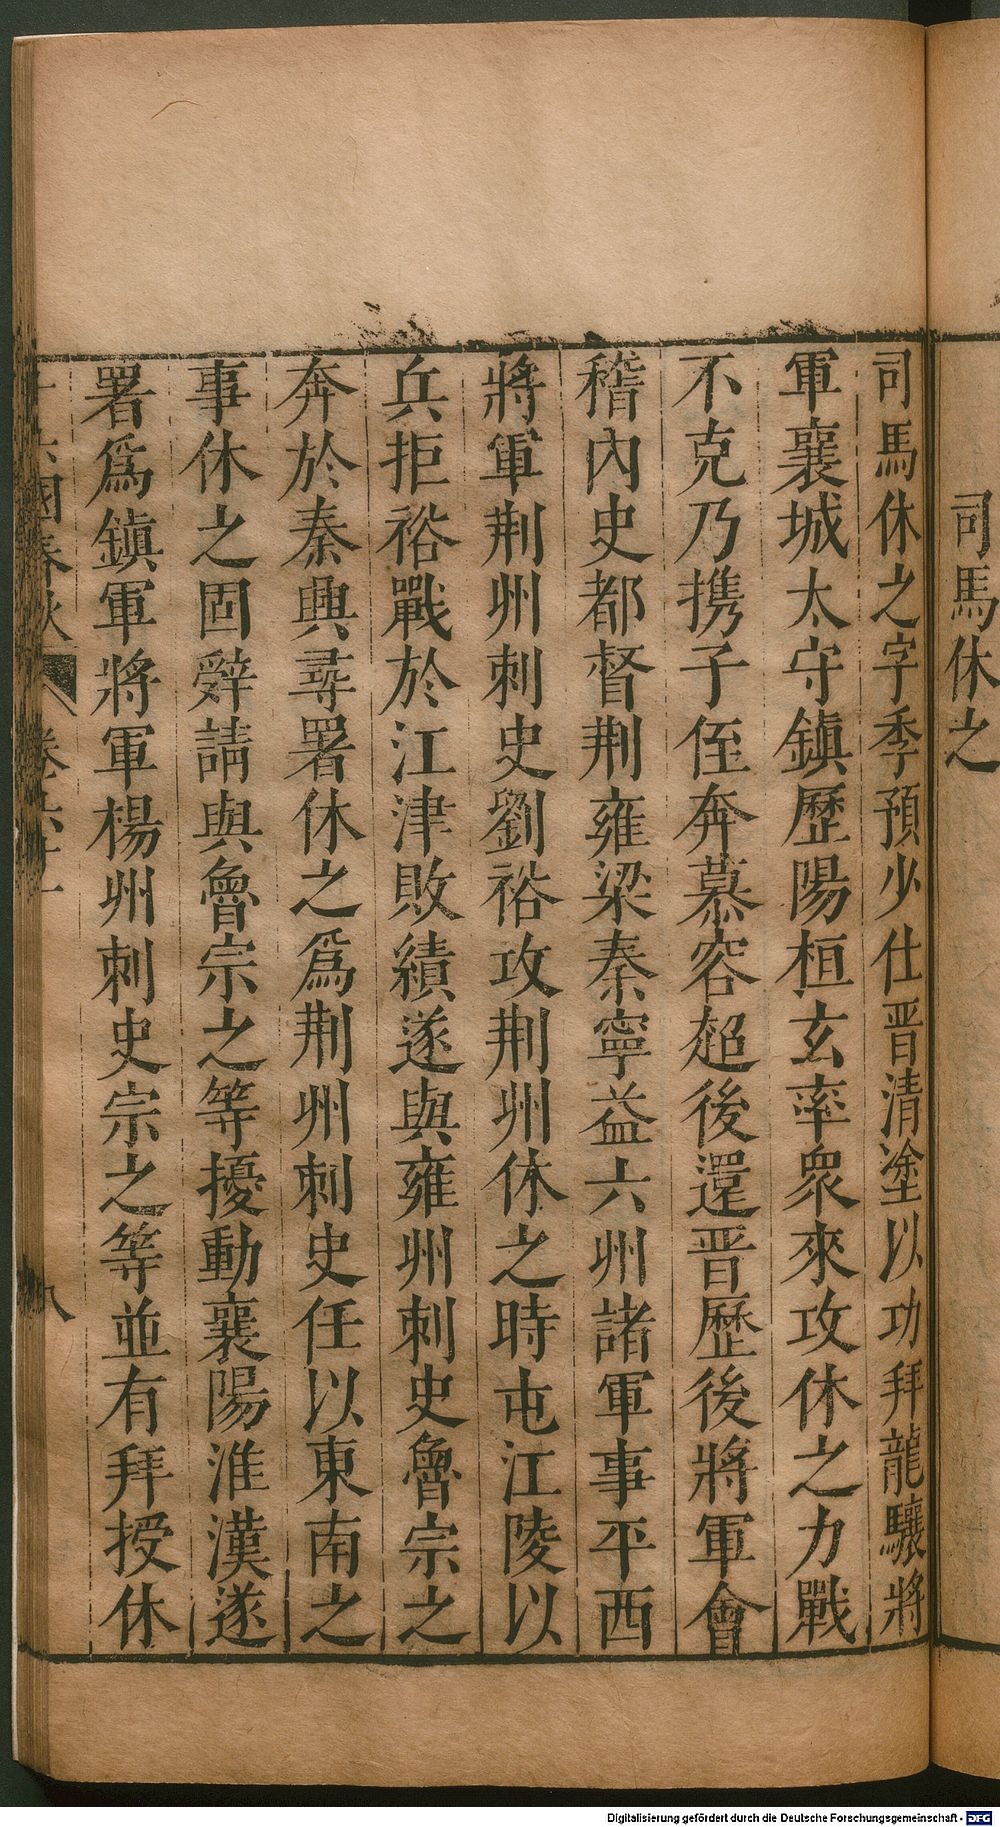 司馬休之
司馬休之字季預少仕晋清塗以功拜龍驤將
軍襄城太守鎮歷陽桓玄率衆來攻休之力戰
不克乃携子侄奔慕容超後還晋歷後將軍會
稽內史都督荆雍梁秦寧益六州諸軍事平西
將軍荆州刺史劉裕攻荆州休之時屯江陵以
兵拒裕戰於江津敗績遂與雍州刺史魯宗之
奔於秦興尋署休之爲荆州刺史任以東南之
事休之固辭請與魯宗之等擾動襄陽淮漢遂
署爲鎮軍將軍楊州刺史宗之等並有拜授休
國春秋 卷六十 八
Digitalisierung gefördert durch die Deutsche Forschungsgemeinschaft - DFG